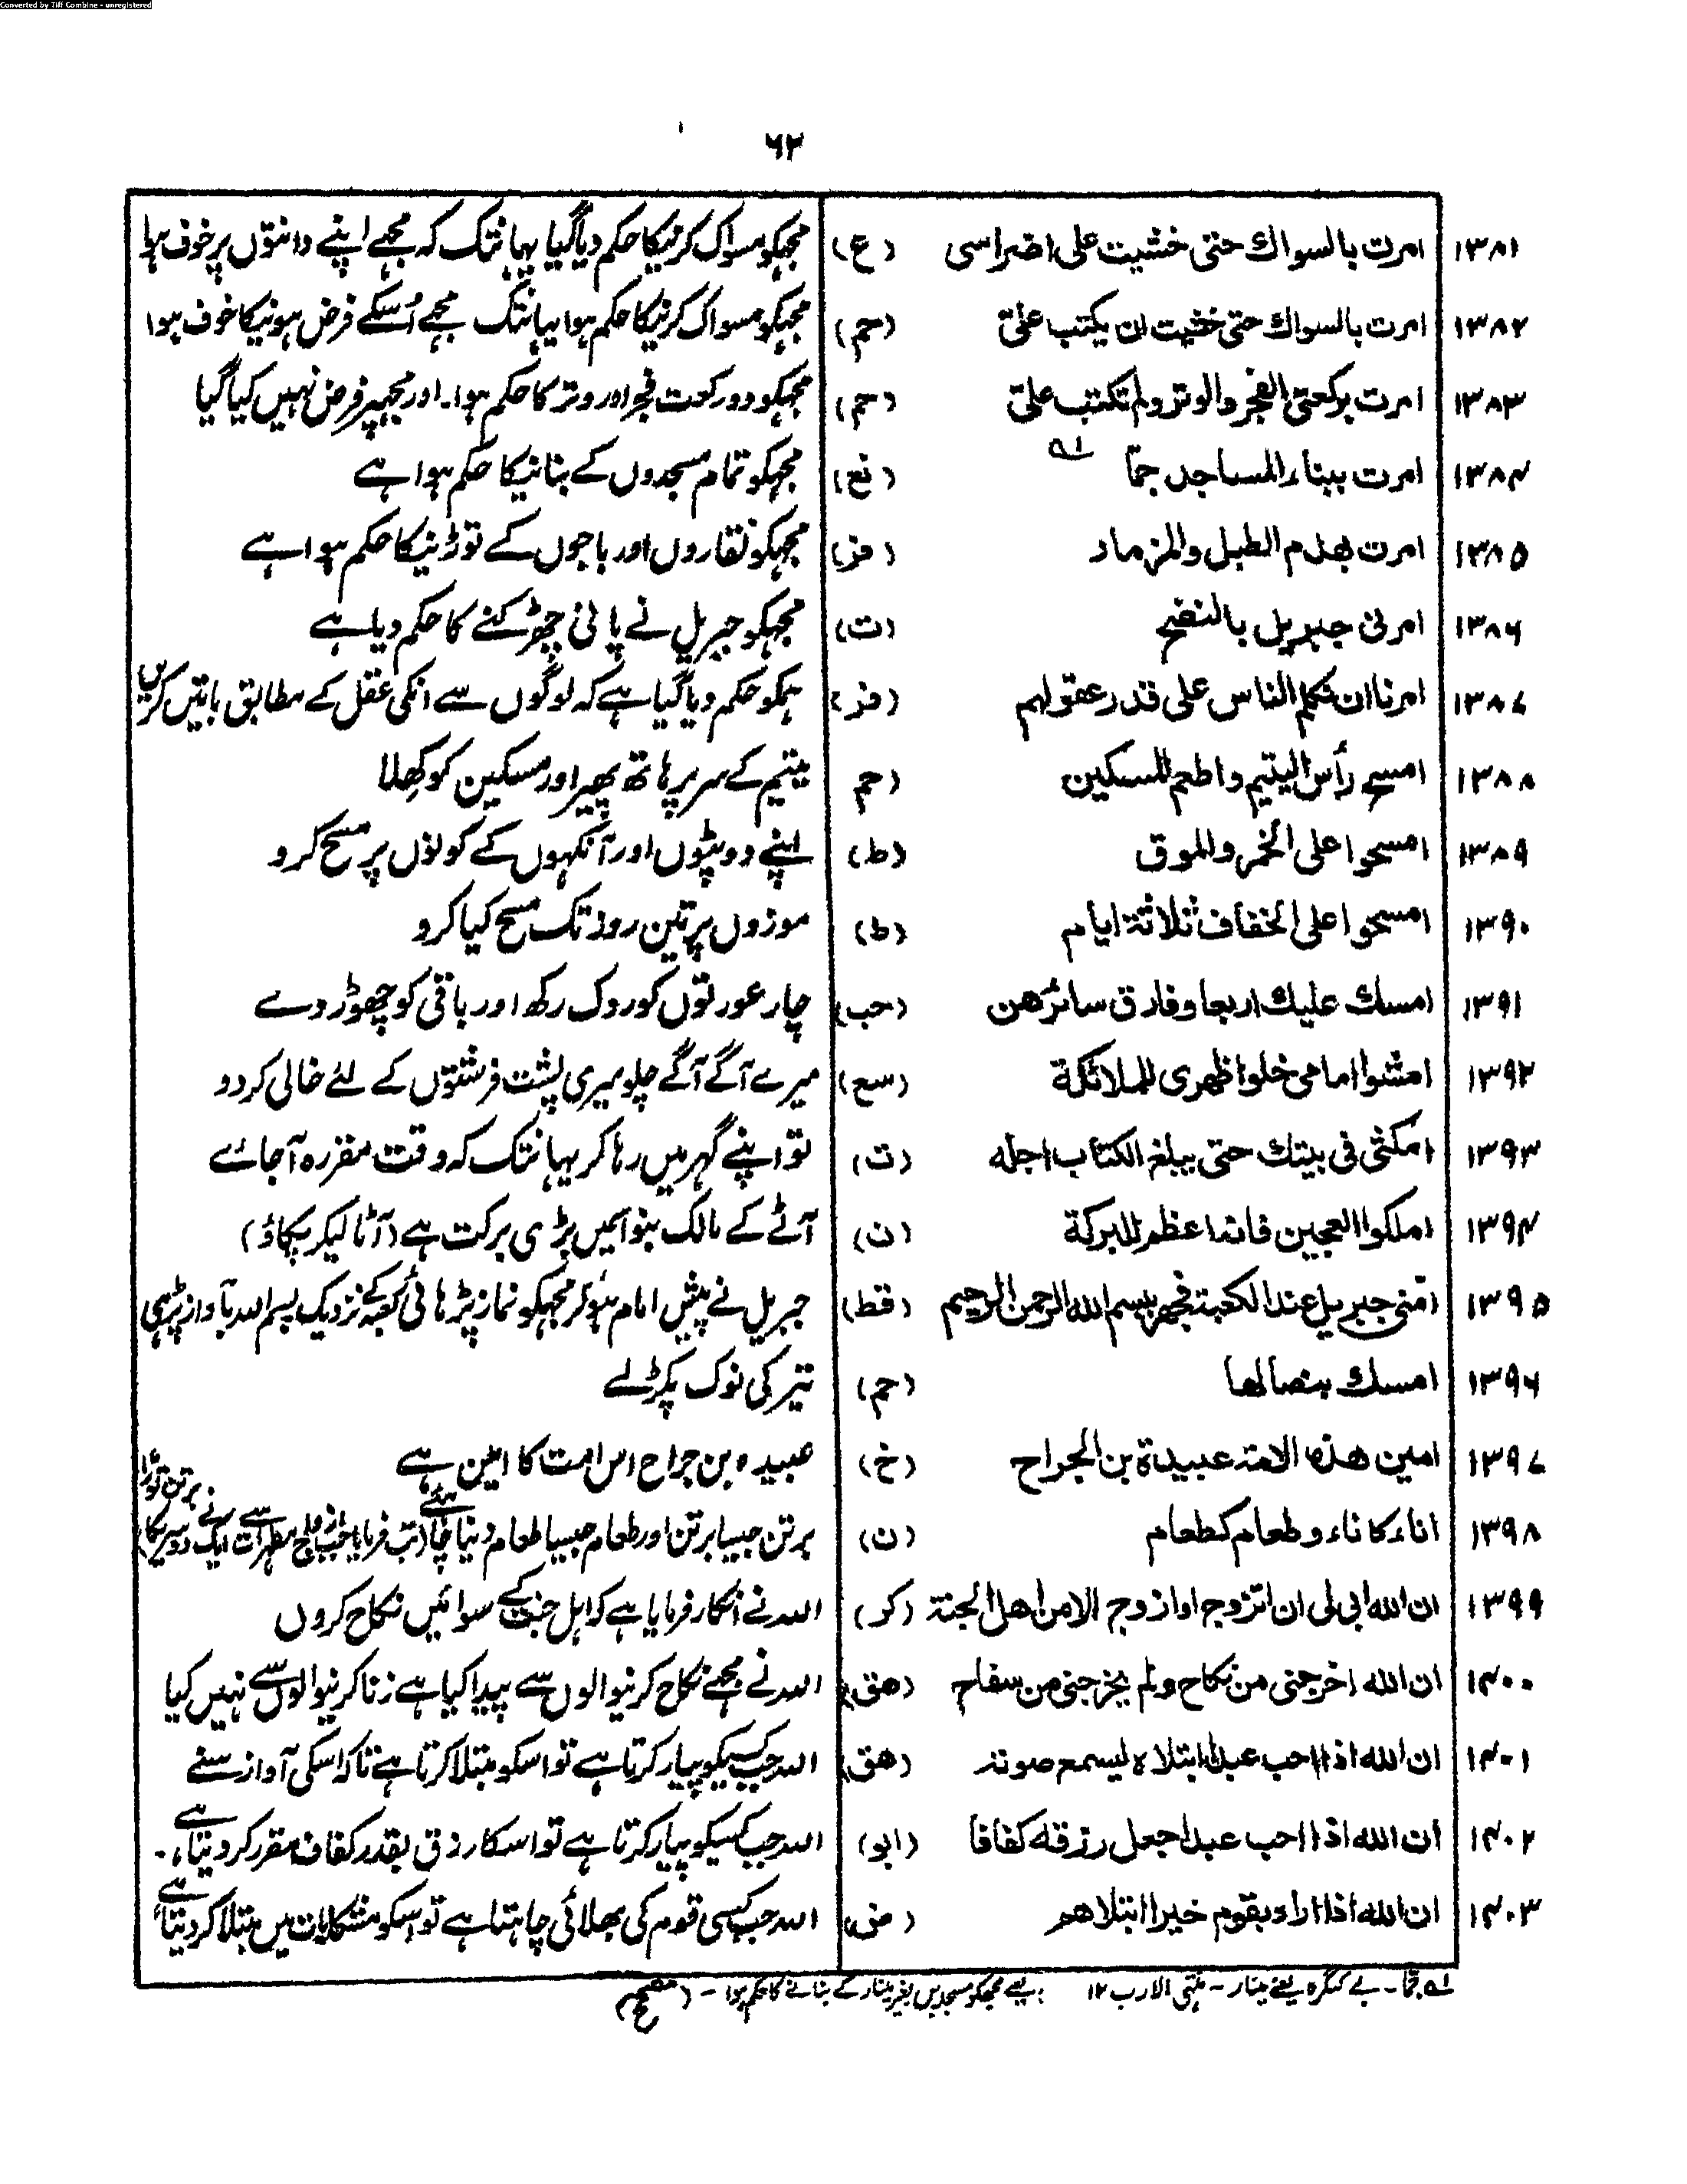 Converted by Tiff Combine - unregistered
۶۲
۱۳۸۱ امرت بالسواك حتى خشيت على اضراسى (ع) مجہکو مسواک کرنیکا حکم دیا گیا یہانتک کہ مجہے اپنے دانتوں پر خوف ہوا
۱۳۸۲ امرت بالسواك حتى خشيت ان يكتب علىّ (حم) مجہکو مسواک کرنیکا حکم ہوا یہانتک مجہے اُسکے فرض ہونیکا خوف ہوا
۱۳۸۳ امرت بركعتى الفجر والوتر ولم تكتب علىّ (حم) مجہکو دو رکعت فجر اور وتر کا حکم ہوا۔ اور مجہپر فرض نہیں کیا گیا
۱۳۸۴ امرت ببناء المساجد جمّا ؎۱ (نع) مجہکو تمام مسجدوں کے بنانیکا حکم ہوا ہے
۱۳۸۵ امرت بهدم الطبل والمزمار (فز) مجہکو نقاروں اور باجوں کے توڑنیکا حکم ہوا ہے
۱۳۸۶ امرنى جبريل بالنضح (ت) مجہکو جبریل نے پانی چھڑکنے کا حکم دیا ہے
۱۳۸۷ امرنا ان نكلم الناس على قدر عقولهم (فز) ہمکو حکم دیا گیا ہے کہ لوگوں سے انکی عقل کے مطابق باتیں کریں
۱۳۸۸ امسح رأس اليتيم واطعم المسكين (حم یتیم کے سر پر ہاتھ پھیر اور مسکین کو کھلا
۱۳۸۹ امسحوا على الخمر والموق (ط) اپنے دوپٹوں اور آنکہوں کے کوئوں پر مسح کرو
۱۳۹۰ امسحوا على الخفاف ثلاثة ايام (ط) موزوں پر تین روز تک مسح کیا کرو
۱۳۹۱ امسك عليك اربعا وفارق سائرهن (حب) چار عورتوں کو روک رکھ اور باقی کو چھوڑ دے
۱۳۹۲ امشوا امامى خلوا ظهرى للملائكة (سع) میرے آگے آگے چلو میری پشت فرشتوں کے لئے خالی کردو
۱۳۹۳ امكثى فى بيتك حتى يبلغ الكتاب اجله (ت) تو اپنے گہر میں رہا کر یہانتک کہ وقت مقررہ آجائے
۱۳۹۴ املكوا العجين فانه اعظم للبركة (ن) آٹے کے مالک بنو اسمیں بڑی برکت ہے (آٹا لیکر پکاؤ)
۱۳۹۵ امّنى جبريل عند الكعبة فجهر ببسم الله الرحمن الرحيم (قط) جبریل نے پیش امام ہوکر مجہکو نماز پڑہائی کعبہ کے نزدیک بسم اللہ بآواز پڑہی
۱۳۹۶ امسك بنصالها (حم) تیر کی نوک پکڑ لے
۱۳۹۷ امين هذه الامة عبيدة بن الجراح (خ) عبیدہ بن جراح اس امت کا امین ہے
۱۳۹۸ اناء كاناء وطعام كطعام (ن) برتن جیسا برتن اور طعام جیسا طعام دینا چاہئے (تب فرمایا جب ازواج مطہرات سے ایک نے دوسریکا برتن توڑا)
۱۳۹۹ ان الله ابى لى ان اتزوج او ازوج الا من اهل الجنة (کر) اللہ نے انکار فرمایا ہے کہ اہل جنت کے سوا میں نکاح کروں
۱۴۰۰ ان الله اخرجنى من نكاح ولم يخرجنى من سفاح (هق) اللہ نے مجہے نکاح کرنیوالوں سے پیدا کیا ہے زنا کرنیوالوں سے نہیں کیا
۱۴۰۱ ان الله اذا احب عبدا ابتلاه ليسمع صوته (هق) اللہ جب کسیکو پیار کرتا ہے تو اسکو مبتلا کرتا ہے تاکہ اسکی آواز سنے
۱۴۰۲ ان الله اذا احب عبدا جعل رزقه كفافا (ابو) اللہ جب کسیکو پیار کرتا ہے تو اسکا رزق بقدر کفاف مقرر کر دیتا ہے۔
۱۴۰۳ ان الله اذا اراد بقوم خيرا ابتلاهم (ض) اللہ جب کسی قوم کی بھلائی چاہتا ہے تو اسکو مشکلات میں مبتلا کر دیتا ہے
؎۱ جمّا۔ بے کنگرہ یعنے مینار۔ منتہی الارب ۱۲ یعنے مجھکو مسجدیں بغیر مینار کے بنانے کا حکم ہوا۔ (مصحح)